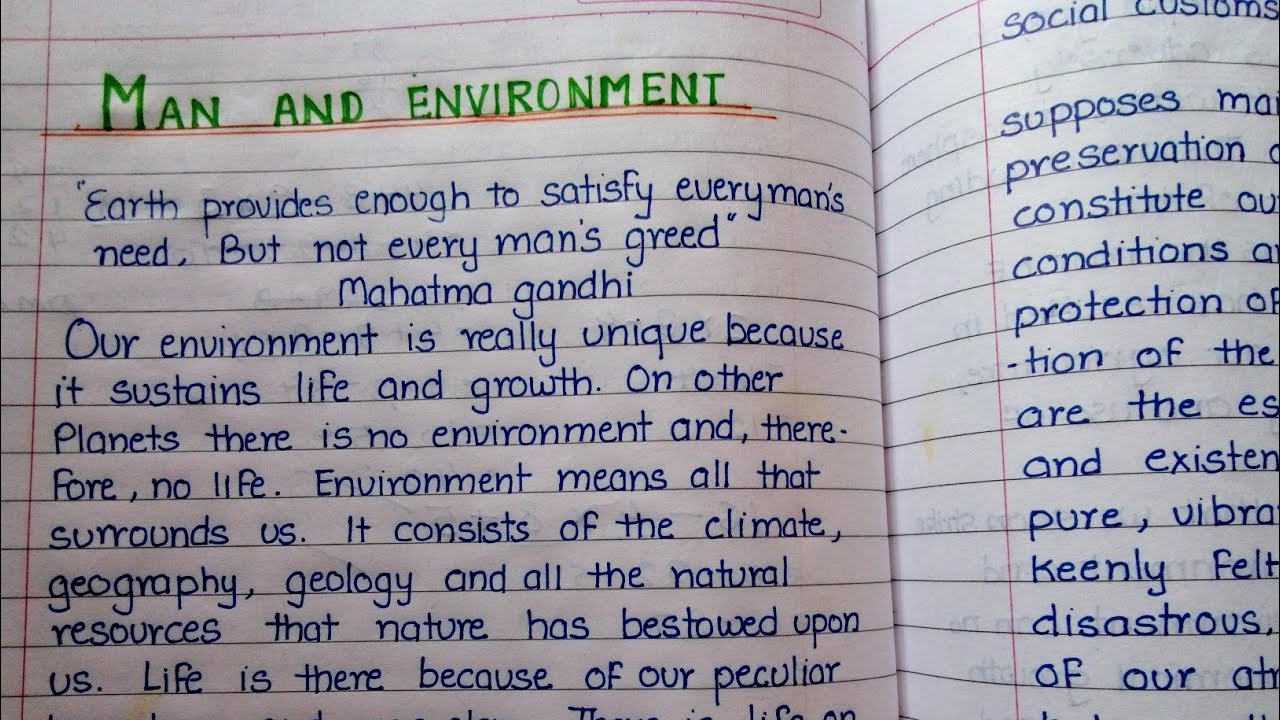 MAN AND ENVIRONMENT
"Earth provides enough to satisfy everyman's
need, But not every man's greed"
Mahatma gandhi
Our environment is really unique because
it sustains life and growth. On other
Planets there is no environment and, there-
Fore, no life. Environment means all that
surrounds us. It consists of the climate,
geography, geology and all the natural
resources that nature has bestowed upon
us. Life is there because of our peculiar
There is life on
social customs
supposes
preservation
constitute
conditions
protection of
-tion of the
are the
and
pure,
Keenly Felt
disastrous,
of our